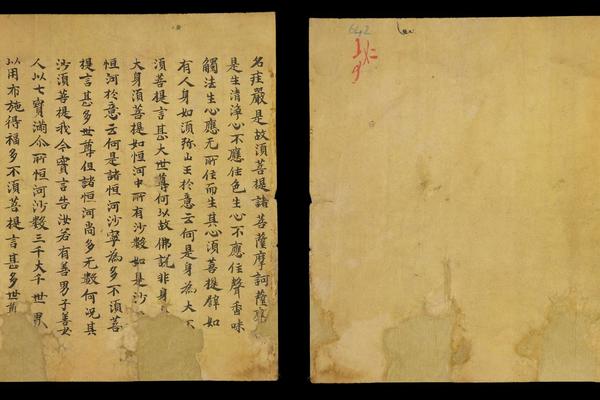 名莊嚴是故須菩提諸菩薩摩訶薩
是生清淨心不應住色生心不應住聲香味
觸法生心應无所住而生其心須菩提辟如
有人身如須弥山王於意云何是身為大不
須菩提言甚大世尊何以故佛說非身
大身須菩提如恒河中所有沙數如是沙
恒河於意云何是諸恒河沙寧為多不須菩
提言甚多世尊但諸恒河尚多无數何況其
沙須菩提我今實言告汝若有善男子善女
人以七寶滿尒所恒河沙數三千大千世界
以用布施得福多不須菩提言甚多世尊
642